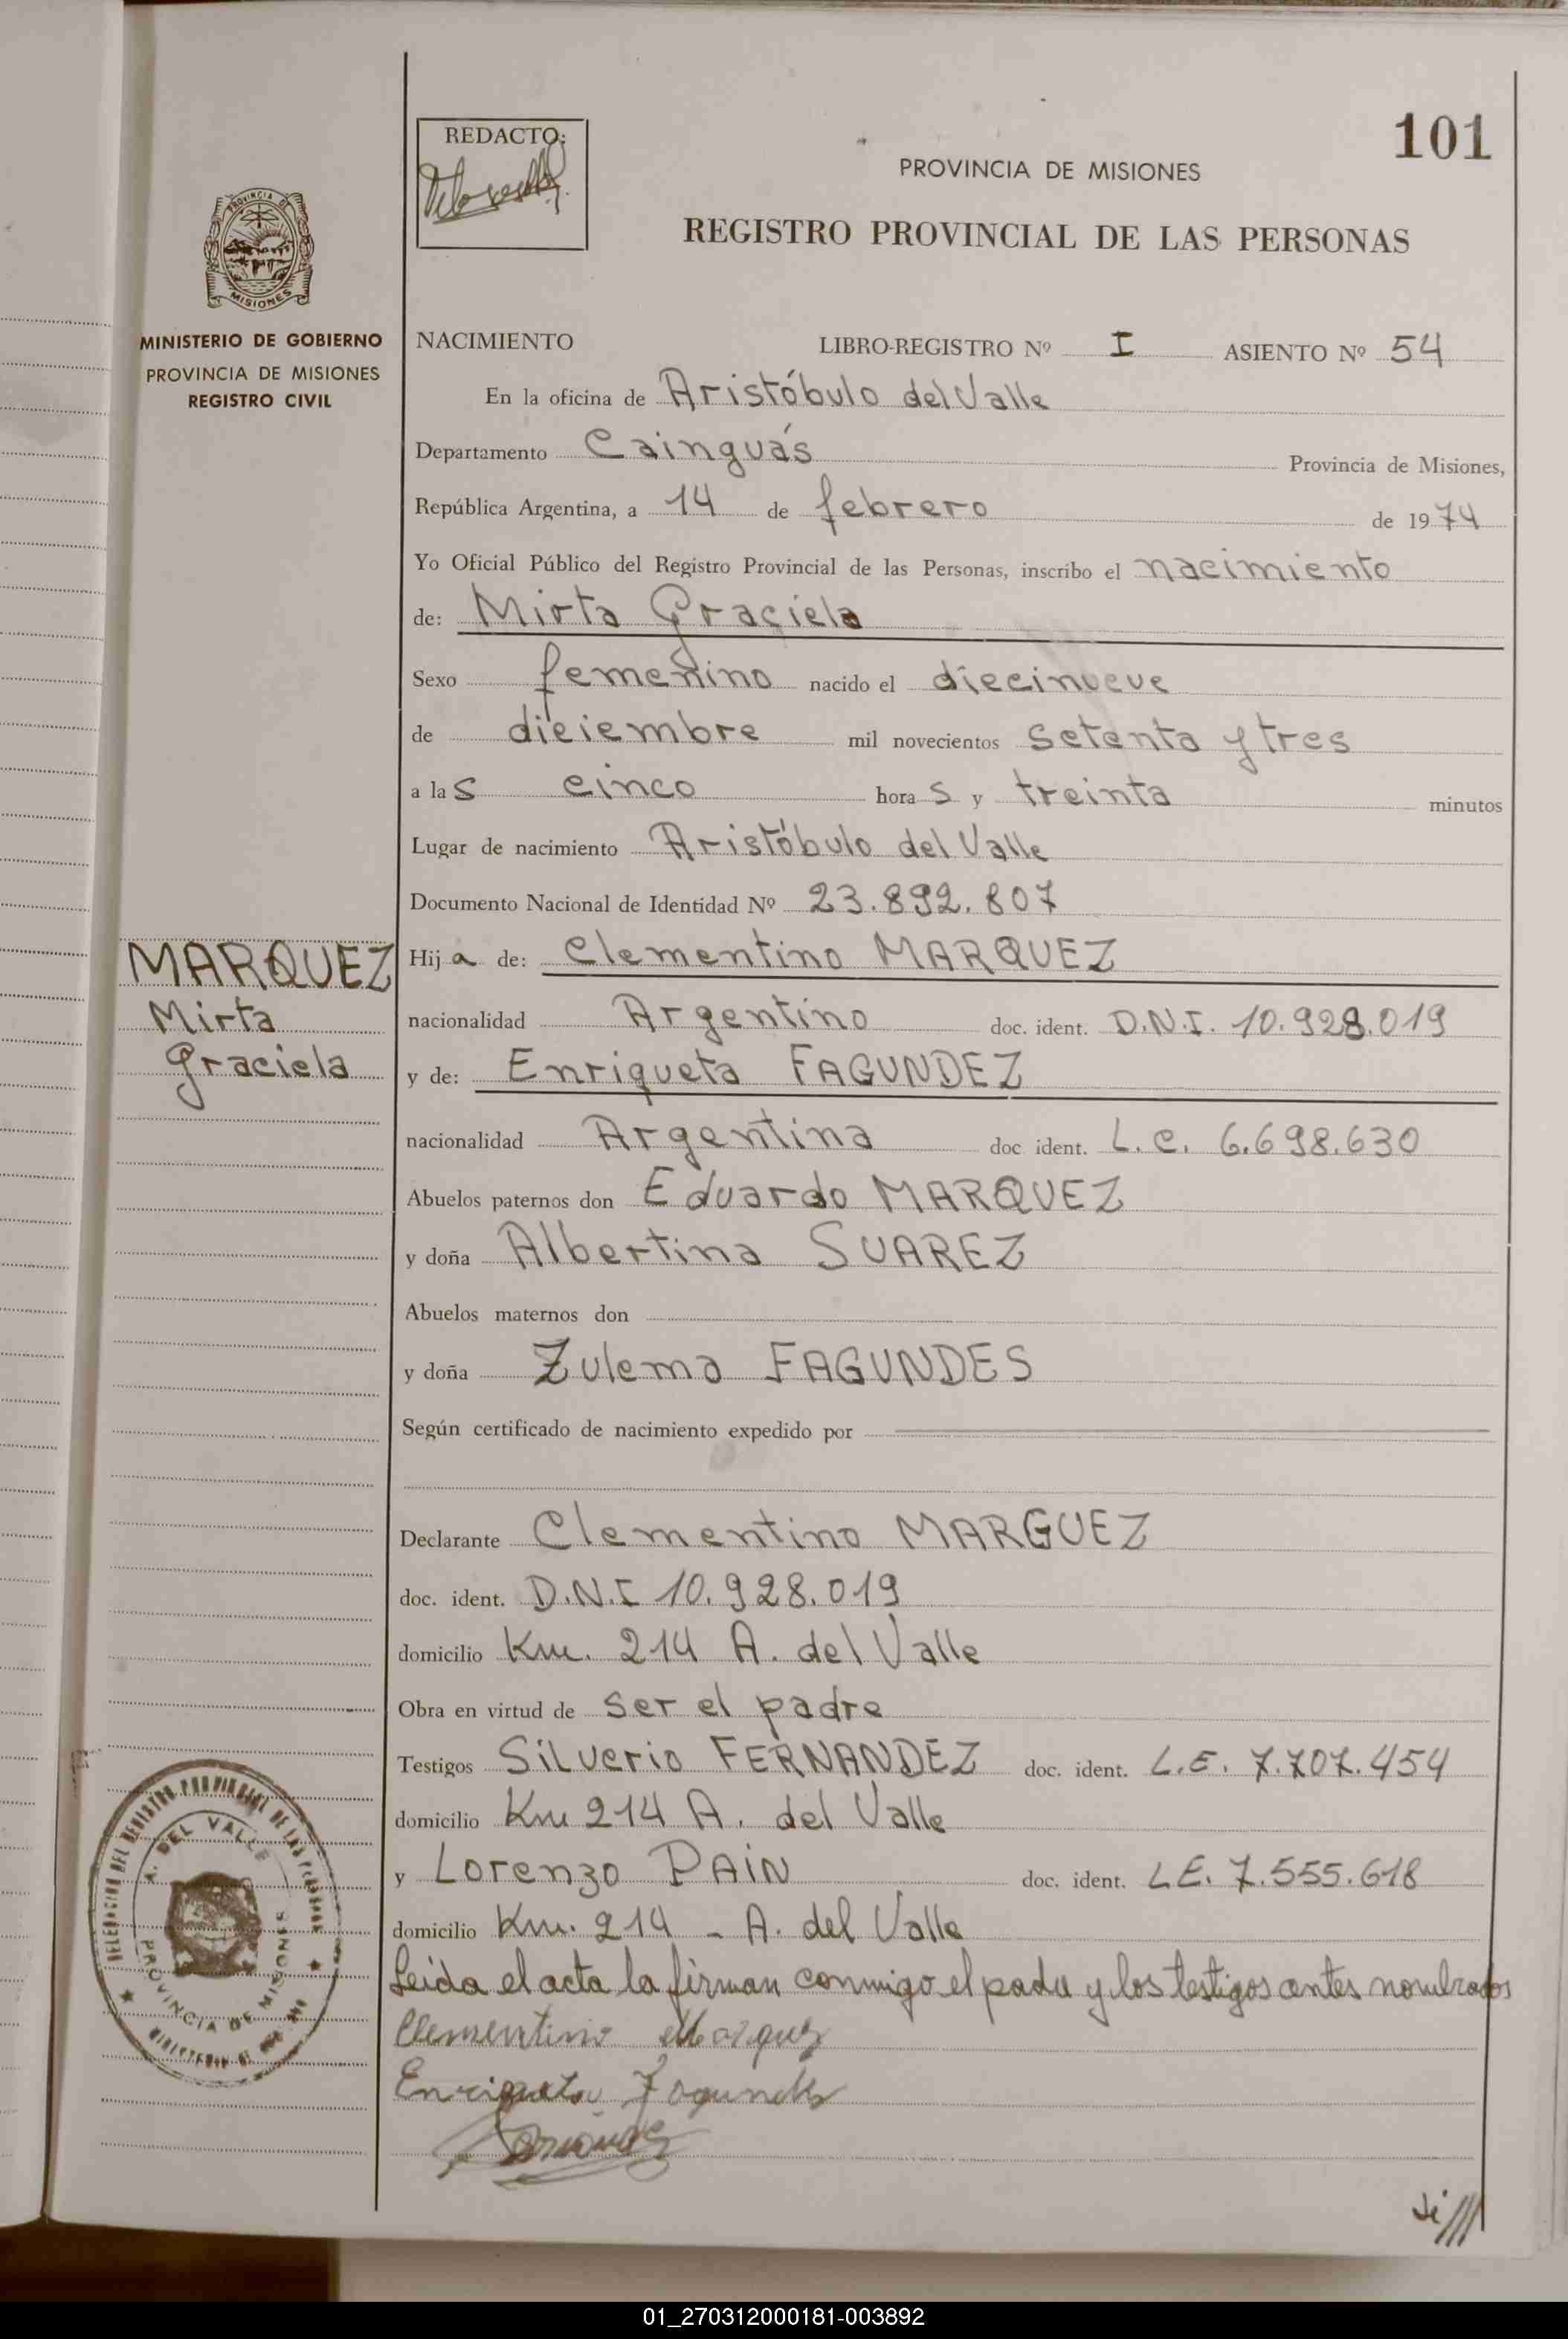 REDACTO:
101
PROVINCIA DE MISIONES
REGISTRO PROVINCIAL DE LAS PERSONAS
PROVINCIA DE
MISIONES
MINISTERIO DE GOBIERNO
PROVINCIA DE MISIONES
REGISTRO CIVIL
NACIMIENTO LIBRO-REGISTRO Nº I ASIENTO Nº 54
En la oficina de Aristóbulo del Valle
Departamento Cainguás Provincia de Misiones,
República Argentina, a 14 de febrero de 1974
Yo Oficial Público del Registro Provincial de las Personas, inscribo el nacimiento
de: Mirta Graciela
Sexo femenino nacido el diecinueve
de dieiembre mil novecientos setenta y tres
a las cinco horas y treinta minutos
Lugar de nacimiento Aristóbulo del Valle
Documento Nacional de Identidad Nº 23.892.807
MARQUEZ
Mirta
Graciela
Hija de: Clementino MARQUEZ
nacionalidad Argentino doc. ident. D.N.I. 10.928.019
y de: Enriqueta FAGUNDEZ
nacionalidad Argentina doc ident. L.C. 6.698.630
Abuelos paternos don Eduardo MARQUEZ
y doña Albertina SUAREZ
Abuelos maternos don
y doña Zulema FAGUNDES
Según certificado de nacimiento expedido por
Declarante Clementino MARGUEZ
doc. ident. D.N.I 10.928.019
domicilio Km. 214 A. del Valle
Obra en virtud de ser el padre
Testigos Silverio FERNANDEZ doc. ident. L.E. 7.707.454
domicilio Km 214 A. del Valle
y Lorenzo PAIN doc. ident. L.E. 7.555.618
domicilio Km. 214 - A. del Valle
Leída el acta la firman conmigo el padre y los testigos antes nombrados
Clementino Marquez
Enriqueta Fagundes
DELEGACION DEL REGISTRO PROVINCIAL DE LAS PERSONAS
A. DEL VALLE
PROVINCIA DE MISIONES
01_270312000181-003892